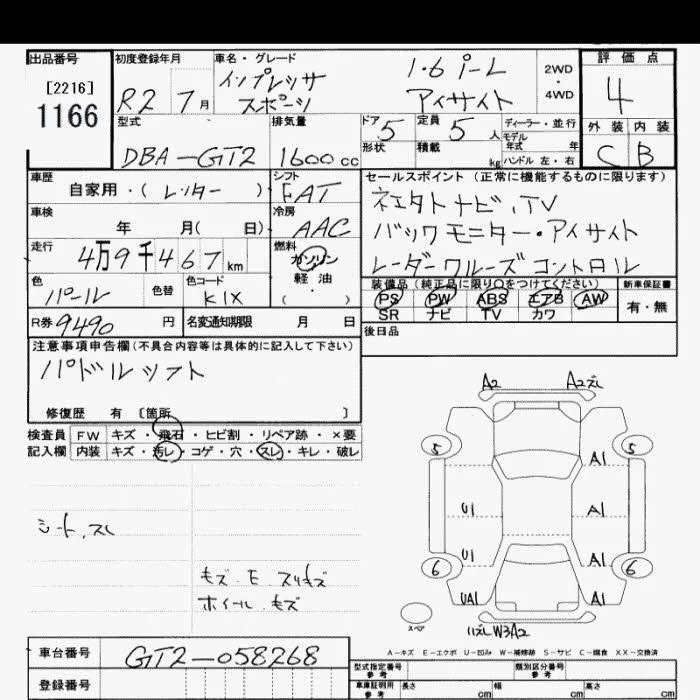 出品番号 初度登録年月 車名・グレード 評価点
[2216] R2 7月 インプレッサ 1.6 i-L 2WD・4WD 4
1166 スポーツ アイサイト 外装 内装
型式 排気量 ドア 5 定員 5人 ディーラー・並行 C B
DBA-GT2 1600cc 形状 積載 kg モデル年式 年 ハンドル 左・右
車歴 シフト セールスポイント (正常に機能するものに限ります)
自家用・(レンター) FAT ネエクトナビ,TV
車検 年 月( 日) 冷房 AAC バックモニター・アイサイト
走行 4万9千467km 燃料 ガソリン レーダークルーズコントロル
色 色替 色コード 軽油 装備品 (純正品に限り○をつけてください) 新車保証書
パール K1X ( ・ ) PS PW ABS エアB AW 有・無
SR ナビ TV カワ
R券 9490円 名変通知期限 月 日 後日品
注意事項申告欄(不具合内容等は具体的に記入して下さい)
パドルシフト
修復歴 有 [箇所 ]
検査員 FW キズ・飛石・ヒビ割・リペア跡・×要
記入欄 内装 キズ・汚レ・コゲ・穴・スレ・キレ・破レ
A2 A2ズレ
5 5
A1
U1 A1
U1 A1
6 6
UA1 A1
スペア
ハズレW3A2
シート,スレ
キズ.E.スリキズ
ホイール.キズ
A-キズ E-エクボ U-凹み W-補修跡 S-サビ C-腐食 XX-交換済
車台番号 GT2-058268 型式指定番号 参考 類別区分番号 参考
登録番号 車庫証明用 参考 長さ cm 幅 cm 高さ cm